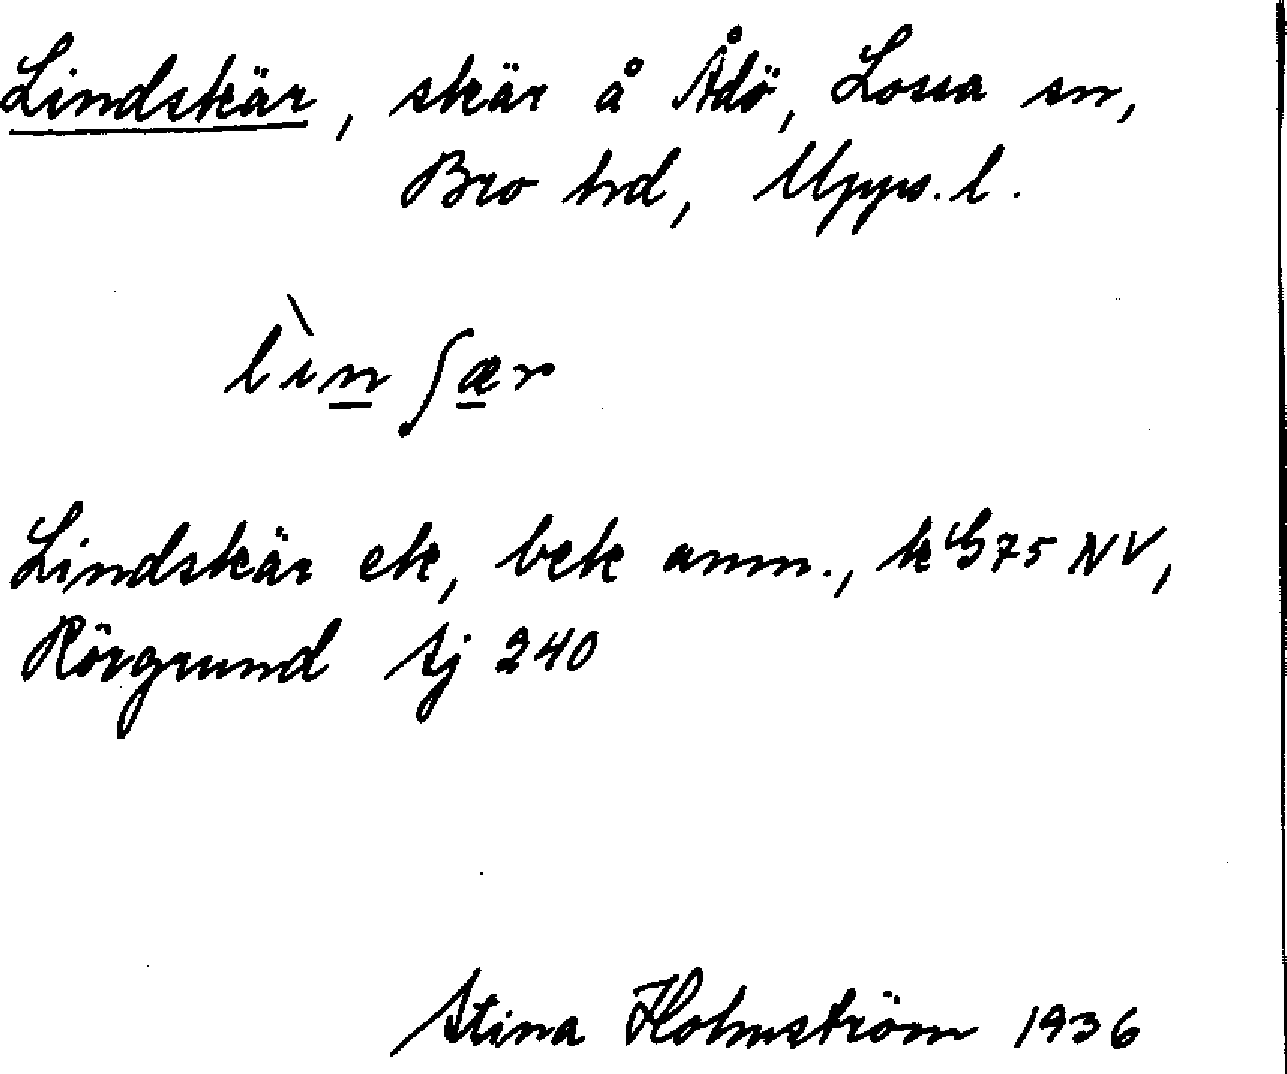 Lindskär, skär å Ådö, Lossa sn,
Bro hd, Upps. l.
lìn ʃær
Lindskär ek, bek anm., k G 75 NV,
Rörgrund Sj 240
Stina Holmström 1936